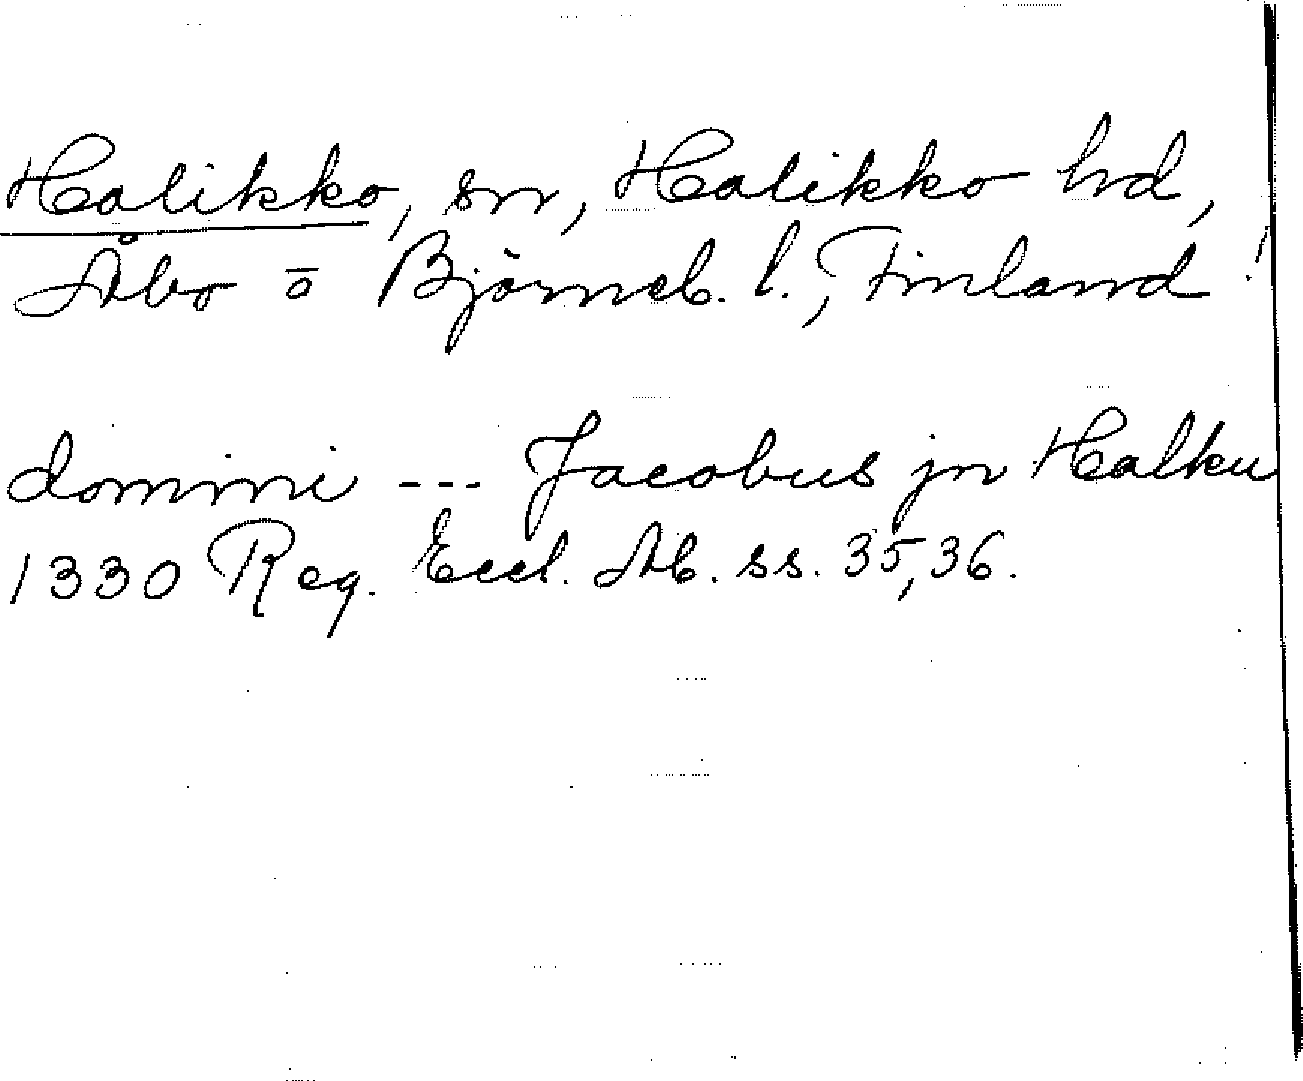 Halikko, sn, Halikko hd,
Åbo o Björneb. l., Finland
domini --- Jacobus jn Halku
1330 Reg. Eccl. Ab. ss. 35, 36.